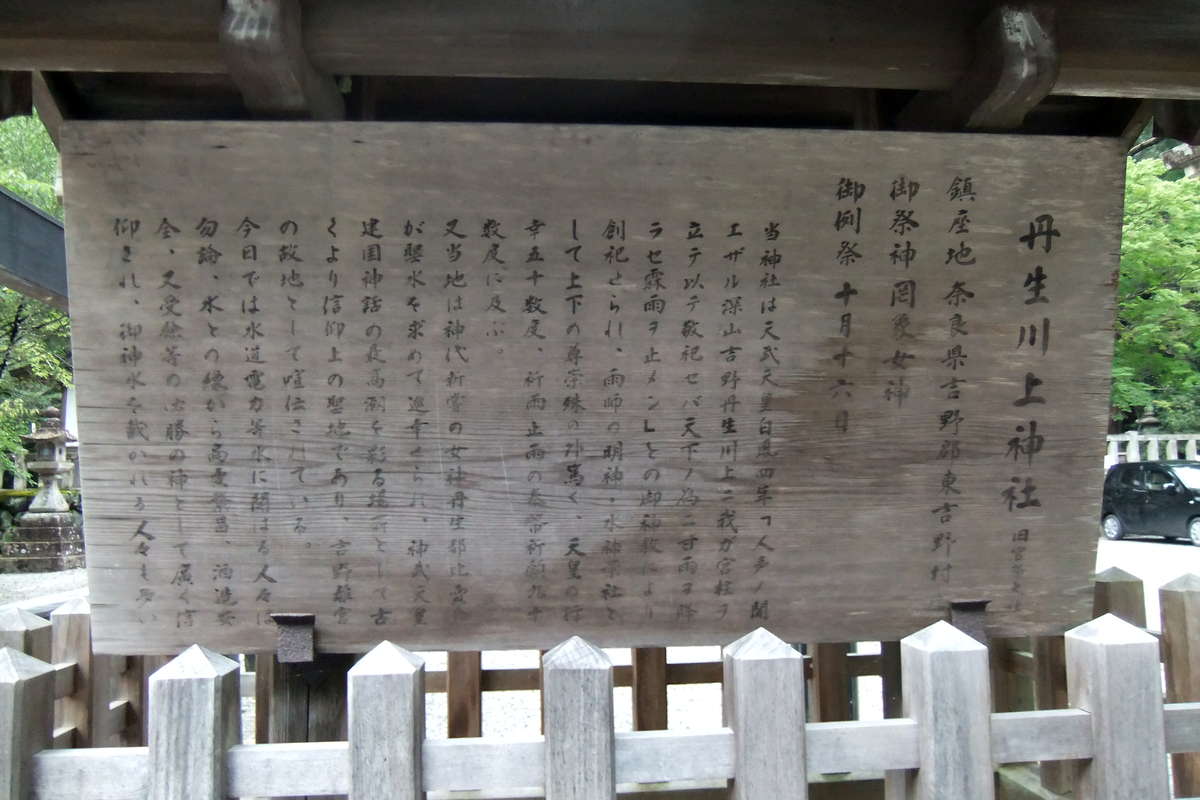 丹生川上神社 旧官幣大社
鎮座地 奈良県吉野郡東吉野村
御祭神 罔象女神
御例祭 十月十六日
当神社は天武天皇白鳳四年「人声ノ聞
エザル深山吉野丹生川上ニ我ガ宮柱ヲ
立テ以テ敬祀セバ天下ノ為ニ甘雨ヲ降
ラセ霖雨ヲ止メン」との御神教により
創祀せられ、雨師の明神・水神宗社と
して上下の尊崇殊の外篤く、天皇の行
幸五十数度、祈雨止雨の奉幣祈願九十
数度に及ぶ。
又当地は神代新嘗の女神丹生都比売命
が聖水を求めて巡幸せられ、神武天皇
建国神話の最高潮を彩る場所として古
くより信仰上の聖地であり、吉野離宮
の故地として喧伝されている。
今日では水道電力等水に関はる人々は
勿論、水との縁から商売繁昌、酒造安
全、又受験等の必勝の神として広く信
仰され、御神水を戴かれる人々も多い